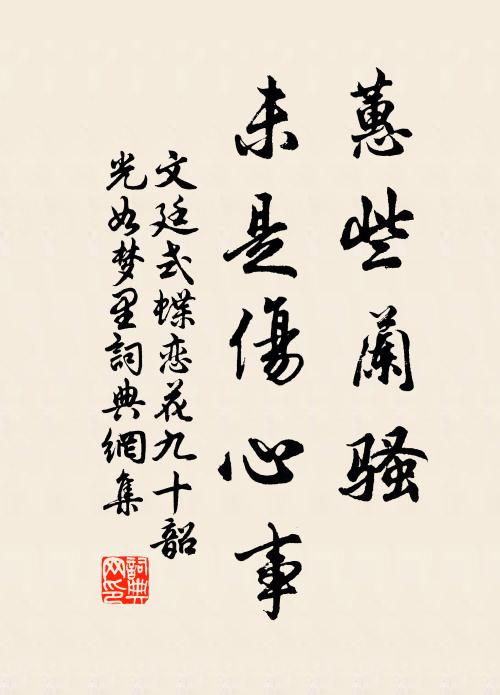 蕙些蘭騷
未是傷心事
文廷式蝶恋花九十韶
光如梦里詞典網集
詞典
网印